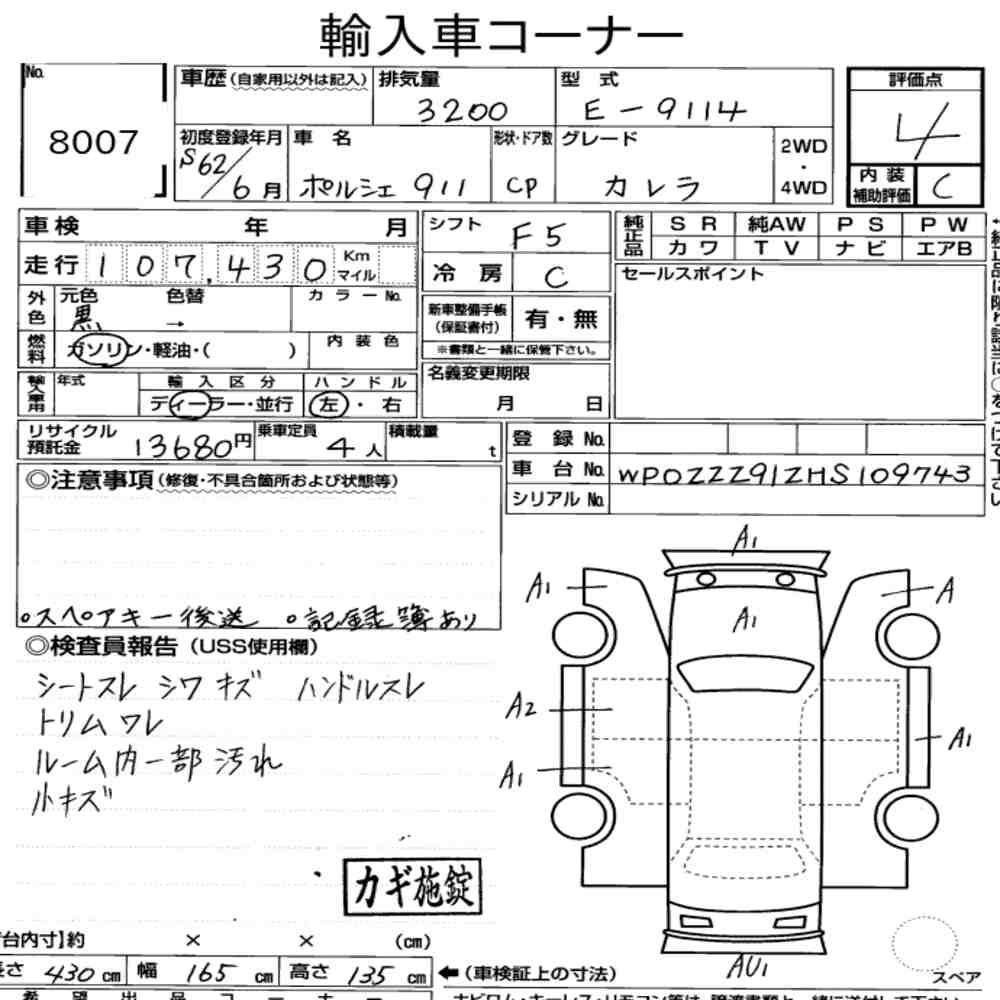 輸入車コーナー
No.
8007
車歴(自家用以外は記入)
排気量
3200
型式
E-9114
評価点
4
初度登録年月
S62/6月
車名
ポルシェ 911
形状・ドア数
CP
グレード
カレラ
2WD
・
4WD
内装
補助評価
C
車検 年 月
走行 107,430 Km マイル
外色
元色 色替
黒 →
カラーNo.
燃料
ガソリン・軽油・( )
内装色
輸入車用
年式
輸入区分
ディーラー・並行
ハンドル
左・右
シフト
F5
冷房
C
新車整備手帳
(保証書付)
有・無
※書類と一緒に保管下さい。
名義変更期限
月 日
純正品
SR 純AW PS PW
カワ TV ナビ エアB
セールスポイント
リサイクル
預託金
13680円
乗車定員
4人
積載量
t
登録No.
車台No.
WP0ZZZ91ZHS109743
シリアルNo.
◎注意事項(修復・不具合箇所および状態等)
○スペアキー後送 ○記録簿あり
◎検査員報告(USS使用欄)
シートスレ シワ キズ ハンドルスレ
トリムワレ
ルーム内一部汚れ
小キズ
カギ施錠
A1
A1
A
A1
A2
A1
A1
AU1
スペア
台内寸】約 × × (cm)
長さ 430cm 幅 165cm 高さ 135cm
←(車検証上の寸法)
希望出品コーナー